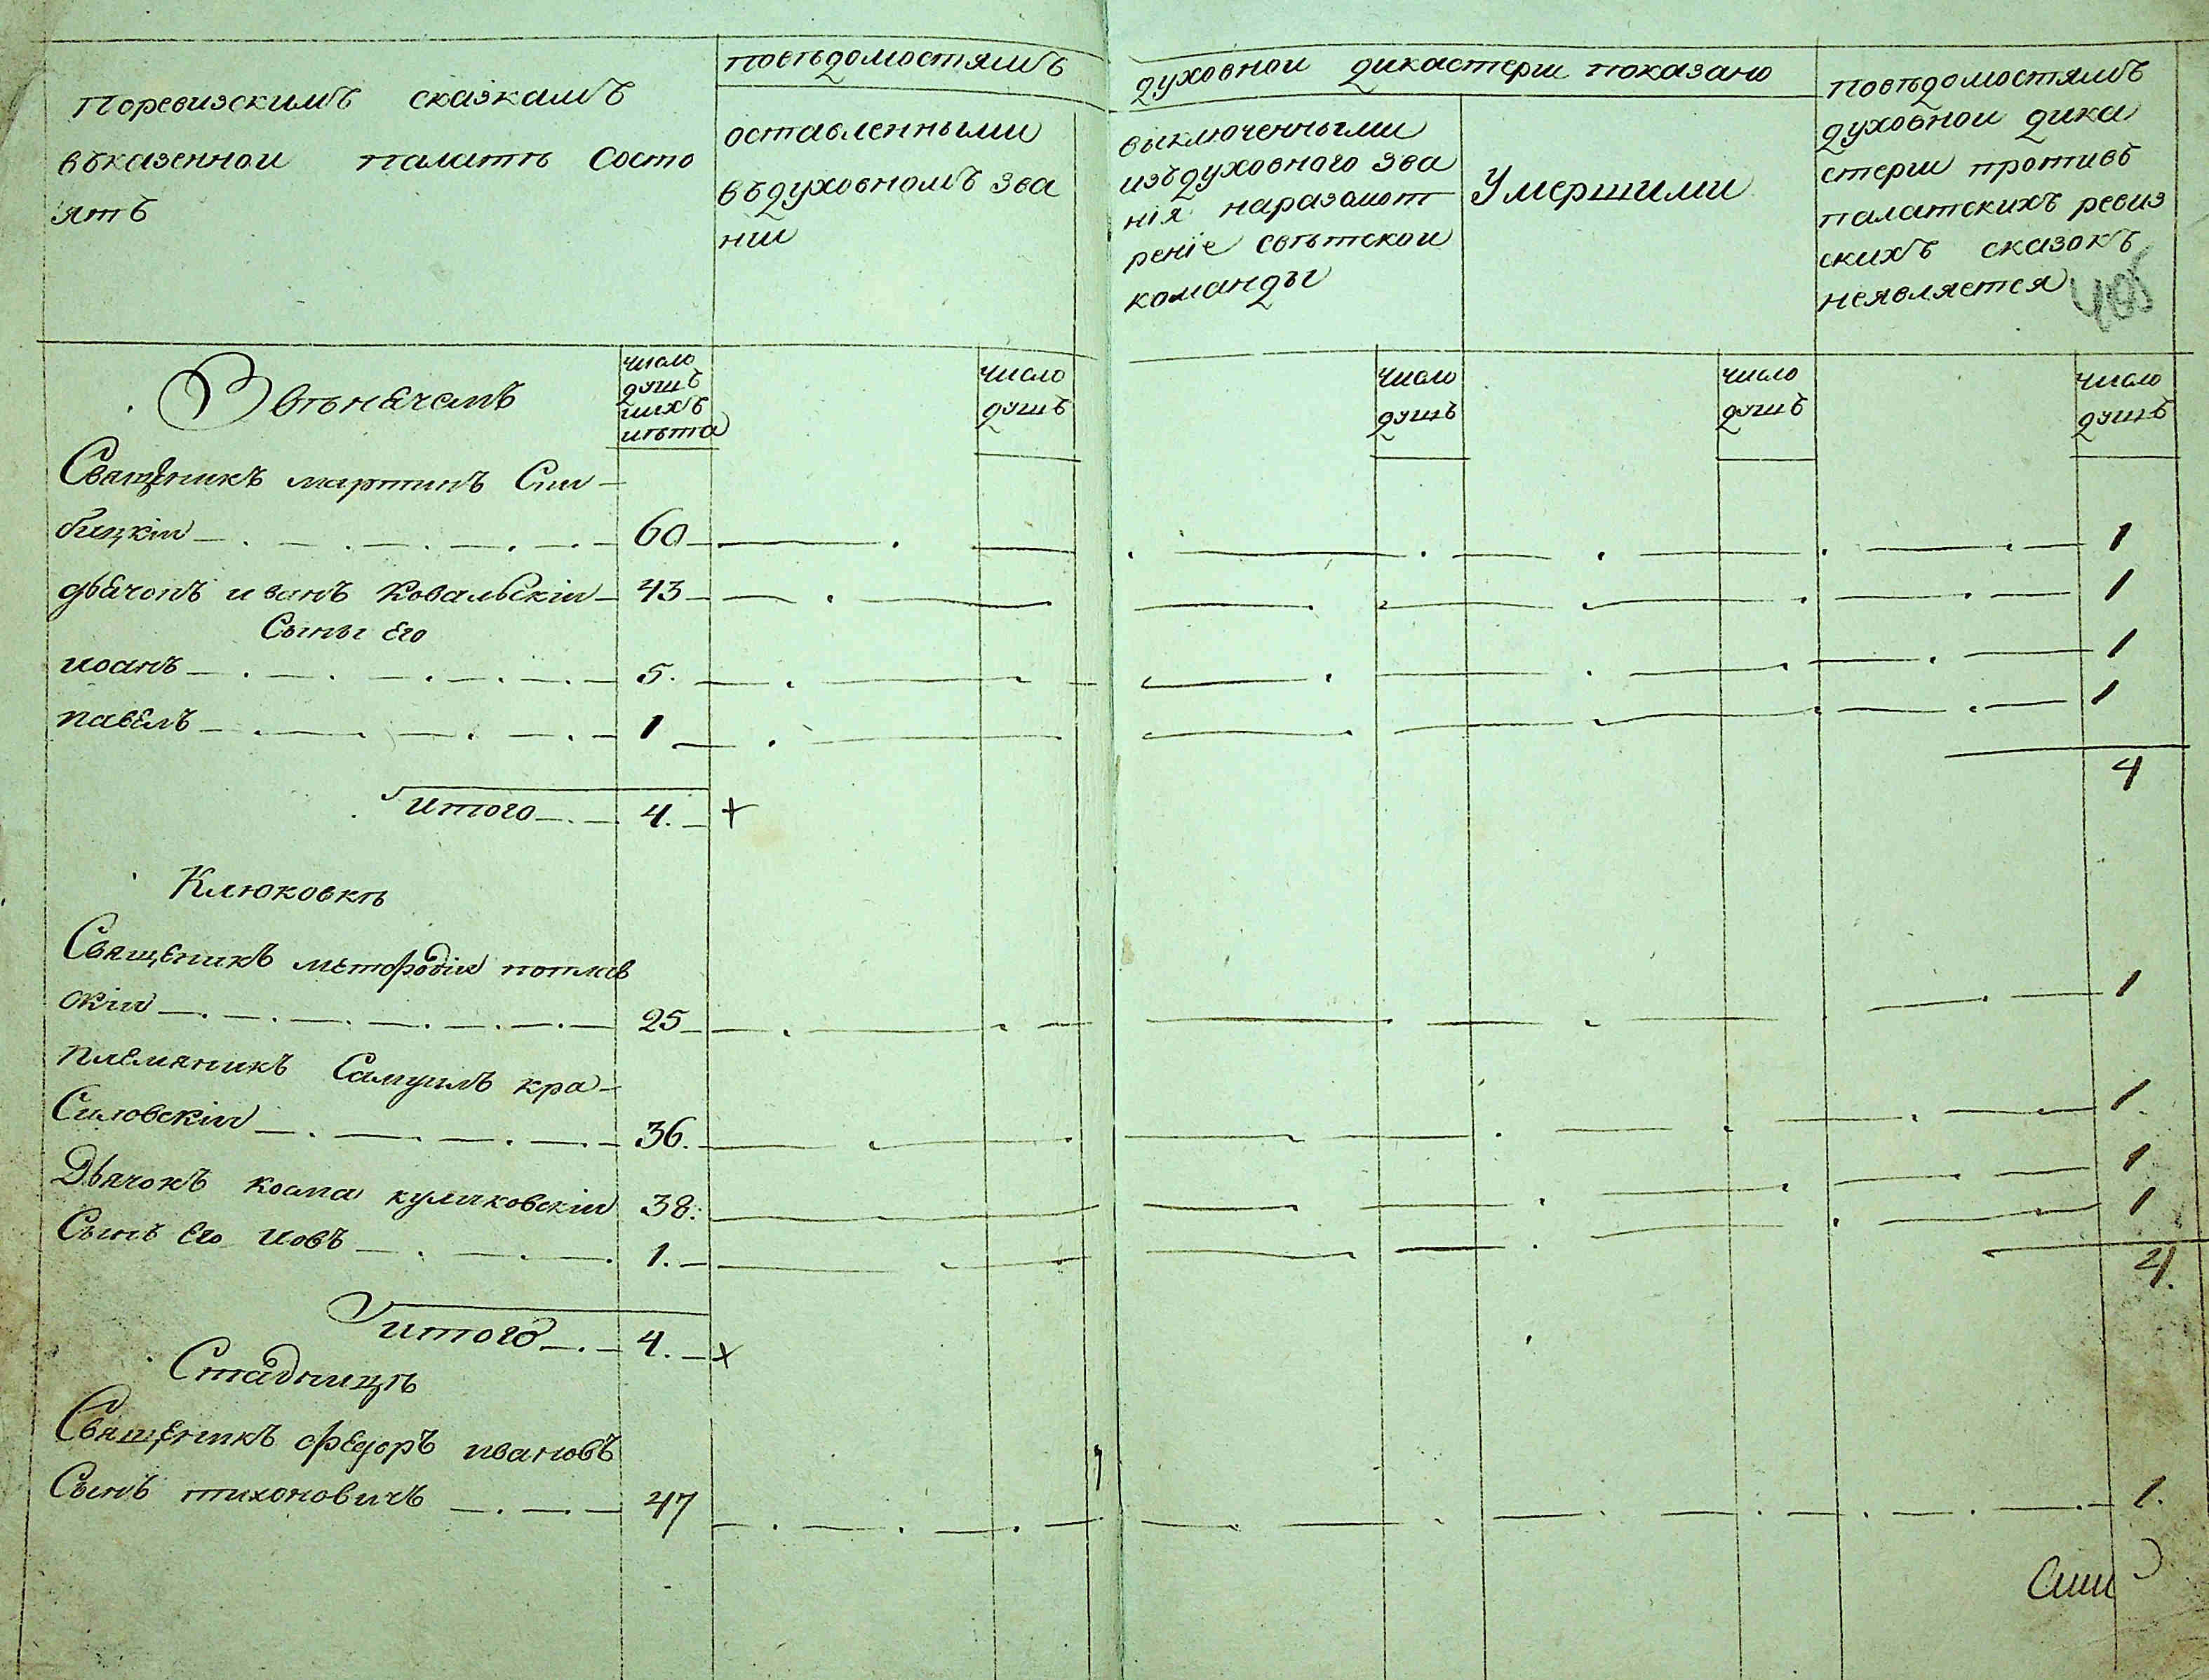 Поревизскимъ сказкамъ
вказеннои палатѣ Состо
ятъ
повѣдомостямъ
оставленными
въдуховномъ зва
нии
духовнои дикастерии показано
выключенными
изъдуховного зва
нія наразсмот
реніе свѣтскои
команды
Умершими
повѣдомостямъ
духовнои дика
стерии противъ
палатскихъ ревиз
скихъ сказокъ
неявляется
число
душъ
ихъ
лѣта
число
душъ
число
душъ
число
душъ
число
душъ
Священикъ мартинъ
бицкіи 60 1
дьячокъ иванъ Ковальскіи 43 1
Сыны его
иоанъ 5. 1
павелъ 1 1
4
итого 4. +
Клюковкѣ
Священикъ метофодіи
скіи 25 1
племяникъ Самуилъ кра-
Силовскіи 36. 1.
Дьячокъ косма куликовскіи 38: 1
Сынъ его иовъ 1. 1
4.
итого 4. +
Стадницѣ
Священикъ федоръ ивановъ
Сынъ тихоновичъ 47 1.